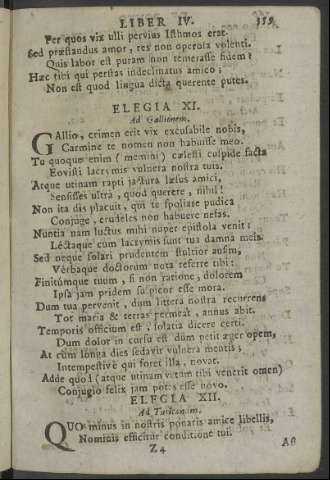 LIBER IV. 359
Per quos vix ulli pervius Isthmos erat.
Sed præstandus amor; res non operosa volenti.
Quis labor est puram non temerasse fidem?
Hæc tibi qui perstas indeclinatus amico;
Non est quod lingua dicta querente putes.
ELEGIA XI.
Ad Gallionem.
GAllio, crimen erit vix excusabile nobis,
Carmine te nomen non habuisse meo.
Tu quoque enim (memini) cælesti cuspide facta
Fovisti lacrymis vulnera nostra tuis.
Atque utinam rapti jactura læsus amici,
Sensisses ultra, quod querere, nihil!
Non ita dis placuit, qui te spoliare pudica
Conjuge, crudeles non habuere nefas.
Nuntia nam luctus mihi nuper epistola venit:
Lectaque cum lacrymis sunt tua damna meis.
Sed neque solari prudentem stultior ausim,
Verbaque doctorum nota referre tibi:
Finitumque tuum, si non ratione, dolorem
Ipsa jam pridem suspicor esse mora.
Dum tua pervenit, dum littera nostra recurrens
Tot maria & terras permeat, annus abit.
Temporis officium est, solatia dicere certi.
Dum dolor in cursu est dum petit æger opem,
At cum longa dies sedavit vulnera mentis;
Intempestive qui fovet illa, novat.
Adde quod (atque utinam verum tibi venerit omen)
Conjugio felix jam potes esse novo.
ELEGIA XII.
Ad Tuticanum.
QUO minus in nostris ponaris amice libellis,
Nominis efficitur conditione tui.
Z 4